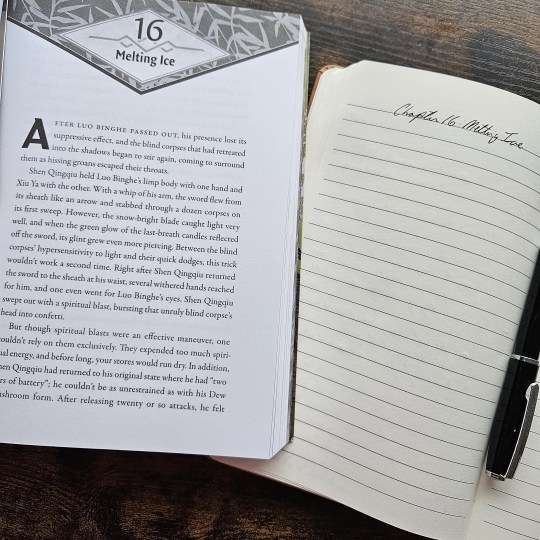 16
Melting Ice
AFTER LUO BINGHE PASSED OUT, his presence lost its
suppressive effect, and the blind corpses that had retreated
into the shadows began to stir again, coming to surround
them as hissing groans escaped their throats.
Shen Qingqiu held Luo Binghe's limp body with one hand and
Xiu Ya with the other. With a whip of his arm, the sword flew from
its sheath like an arrow and stabbed through a dozen corpses on
its first sweep. However, the snow-bright blade caught light very
well, and when the green glow of the last-breath candles reflected
off the sword, its glint grew even more piercing. Between the blind
corpses' hypersensitivity to light and their quick dodges, this trick
wouldn't work a second time. Right after Shen Qingqiu returned
the sword to the sheath at his waist, several withered hands reached
for him, and one even went for Luo Binghe's eyes. Shen Qingqiu
swept out with a spiritual blast, bursting that unruly blind corpse's
head into confetti.
But though spiritual blasts were an effective maneuver, one
ouldn't rely on them exclusively. They expended too much spiri-
ual energy, and before long, your stores would run dry. In addition,
hen Qingqiu had returned to his original state where he had "two
rs of battery"; he couldn't be as unrestrained as with his Dew
ushroom form. After releasing twenty or so attacks, he felt
Chapter 16 - Melting Ice